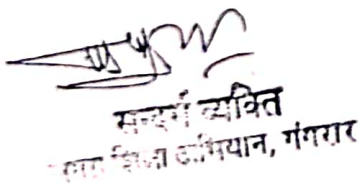 सन्दर्भ व्यक्ति
शिक्षा अभियान, गंगरार